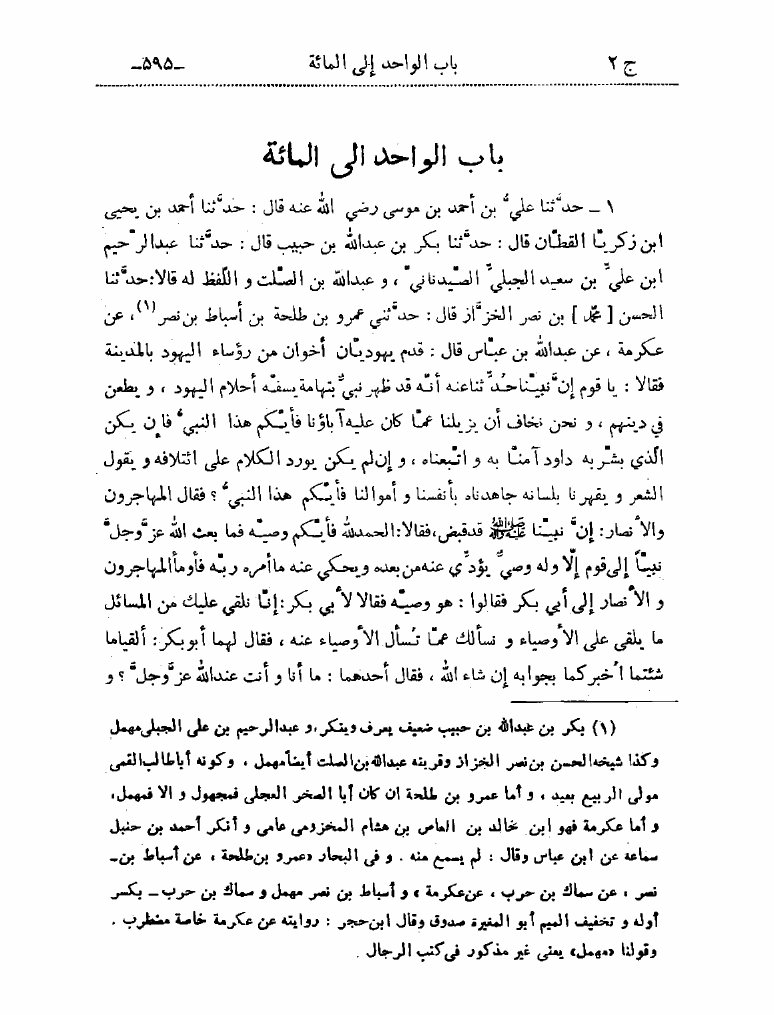 ج ٢ باب الواحد إلى المائة -٥٩٥-
باب الواحد الى المائة
١ - حدَّثنا عليُّ بن أحمد بن موسى رضي الله عنه قال : حدَّثنا أحمد بن يحيى
ابن زكريّا القطّان قال : حدَّثنا بكر بن عبدالله بن حبيب قال : حدَّثنا عبدالرَّحيم
ابن عليّ بن سعيد الجبليّ الصّيدنانيّ ، و عبدالله بن الصلت و اللّفظ له قالا : حدَّثنا
الحسن [ محمّد ] بن نصر الخزَّاز قال : حدَّثني عمرو بن طلحة بن أسباط بن نصر (١) ، عن
عكرمة ، عن عبدالله بن عبّاس قال : قدم يهوديّان أخوان من رؤساء اليهود بالمدينة
فقالا : يا قوم إنَّ نبيّنا حدِّثنا عنه أنّه قد ظهر نبيٌّ بتهامة يسفّه أحلام اليهود ، و يطعن
في دينهم ، و نحن نخاف أن يزيلنا عمّا كان عليه آباؤنا فأيّكم هذا النبيُّ فإن يكن
الّذي بشّر به داود آمنّا به و اتّبعناه ، و إن لم يكن يورد الكلام على ائتلافه و يقول
الشعر و يقهرنا بلسانه جاهدناه بأنفسنا و أموالنا فأيّكم هذا النبيُّ ؟ فقال المهاجرون
والأنصار : إنَّ نبيّنا ﷺ قدقبض ، فقالا : الحمدلله فأيّكم وصيّه فما بعث الله عزَّوجلَّ
نبيّاً إلى قوم إلّا وله وصيٌّ يؤدِّي عنه من بعده ويحكي عنه ماأمره ربّه فأومأالمهاجرون
و الأنصار إلى أبي بكر فقالوا : هو وصيّه فقالا لأبي بكر : إنّا نلقي عليك من المسائل
ما يلقى على الأوصياء و نسألك عمّا تُسأل الأوصياء عنه ، فقال لهما أبوبكر : ألقياما
شئتما اُخبركما بجوابه إن شاء الله ، فقال أحدهما : ما أنا و أنت عندالله عزَّوجلَّ ؟ و
(١) بكر بن عبدالله بن حبيب ضعيف يعرف وينكر ، و عبدالرحيم بن على الجبلى مهمل
وكذا شيخه الحسن بن نصر الخزاز وقرينه عبدالله بن الصلت أيضاً مهمل ، وكونه أباطالب القمى
مولى الربيع بعيد ، و أما عمرو بن طلحة ان كان أبا الصخر العجلى فمجهول و الا فمهمل ،
و أما عكرمة فهو ابن خالد بن العاص بن هشام المخزومى عامى و أنكر أحمد بن حنبل
سماعه عن ابن عباس وقال : لم يسمع منه . و فى البحار «عمرو بن طلحة ، عن أسباط بن-
نصر ، عن سماك بن حرب ، عن عكرمة » و أسباط بن نصر مهمل و سماك بن حرب - بكسر
أوله و تخفيف الميم أبو المغيرة صدوق وقال ابن حجر : روايته عن عكرمة خاصة مضطرب .
وقولنا «مهمل» يعنى غير مذكور فى كتب الرجال .